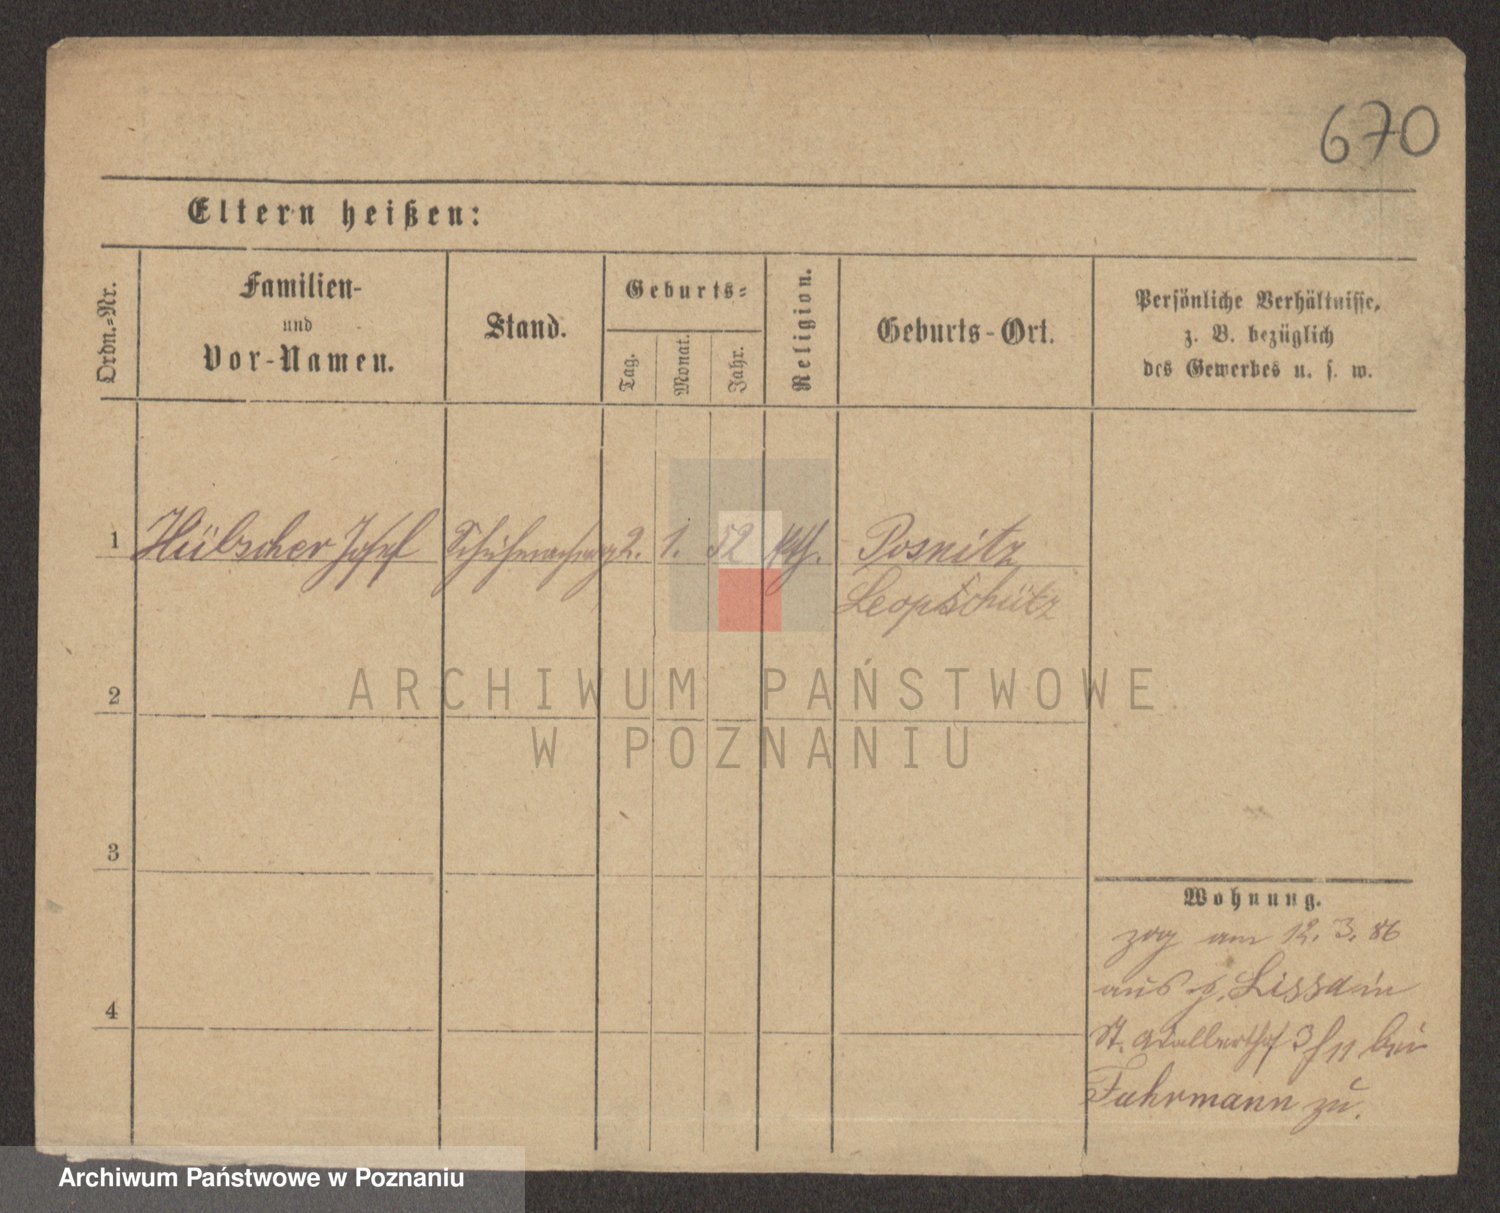 670
Eltern heißen:
Ordn.=Nr.
Familien-
und
Vor-Namen.
Stand.
Geburts=
Tag.
Monat.
Jahr.
Religion.
Geburts-Ort.
Persönliche Verhältnisse,
z. B. bezüglich
des Gewerbes u. s. w.
1 Hübscher Josef 2. 1. 52 kth. Posnitz
Leopschütz
2
ARCHIWUM PAŃSTWOWE
W POZNANIU
3
4
Wohnung.
zog am 12. 3. 86
aus Lissa in
St. Adalberthof 3 bei
Fuhrmann zu.
Archiwum Państwowe w Poznaniu